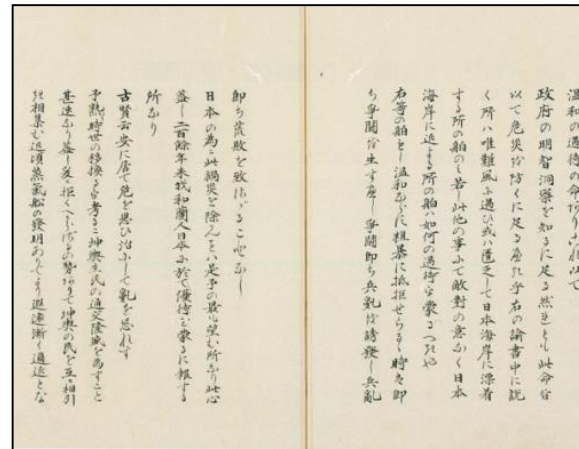 温和の過待の命ありこれ以て
政府の明智洞察を知るに足る然れとも此命令
以て危災を防くに足るへき乎右の諭書中に説
く所ハ唯難風に遇ひ或ハ匱乏して日本海岸に漂着
する所の舶のミ若し此他の事にて敵對の意なく日本
海岸に近よる所の舶ハ如何の過待を蒙るへきや
右等の舶をし温和ならに粗暴に抵拒せらるゝ時ハ即
ち爭闘を生すへし爭闘即ち兵乳を誘發し兵亂
即ち荒敗を致さゝること無し
日本の為に此禍災を除んとハ是予の最も望む所なり此心
蓋し二百餘年来我和蘭人日本に於て優待を蒙るに報する
所なり
古賢云安に居て危を思ひ治にして乱を忘れす
予熟時世の移換るを考るに坤輿生民の通交隆盛を為すこと
甚速なり蓋し爰に拒くへからさるの勢ありて坤輿の民を互に相引
き相集む近頃蒸氣舶の發明ありてより遐遠漸く邇近とな